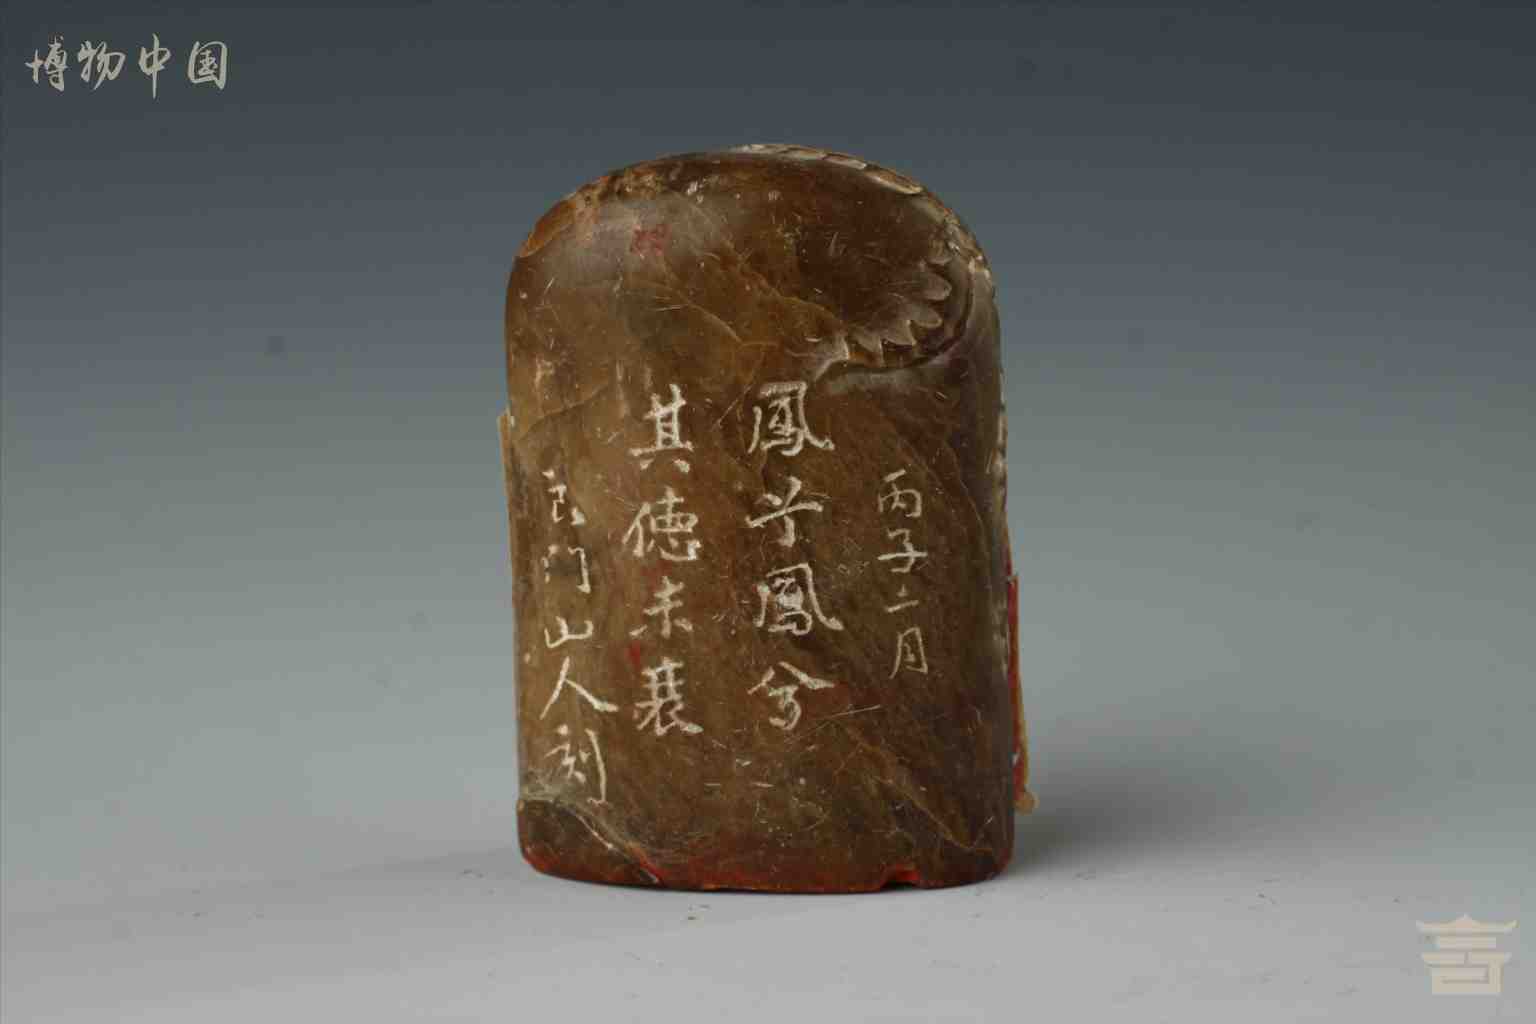 博物中国
丙子二月
鳳兮鳳兮
其徳未衰
门山人刻